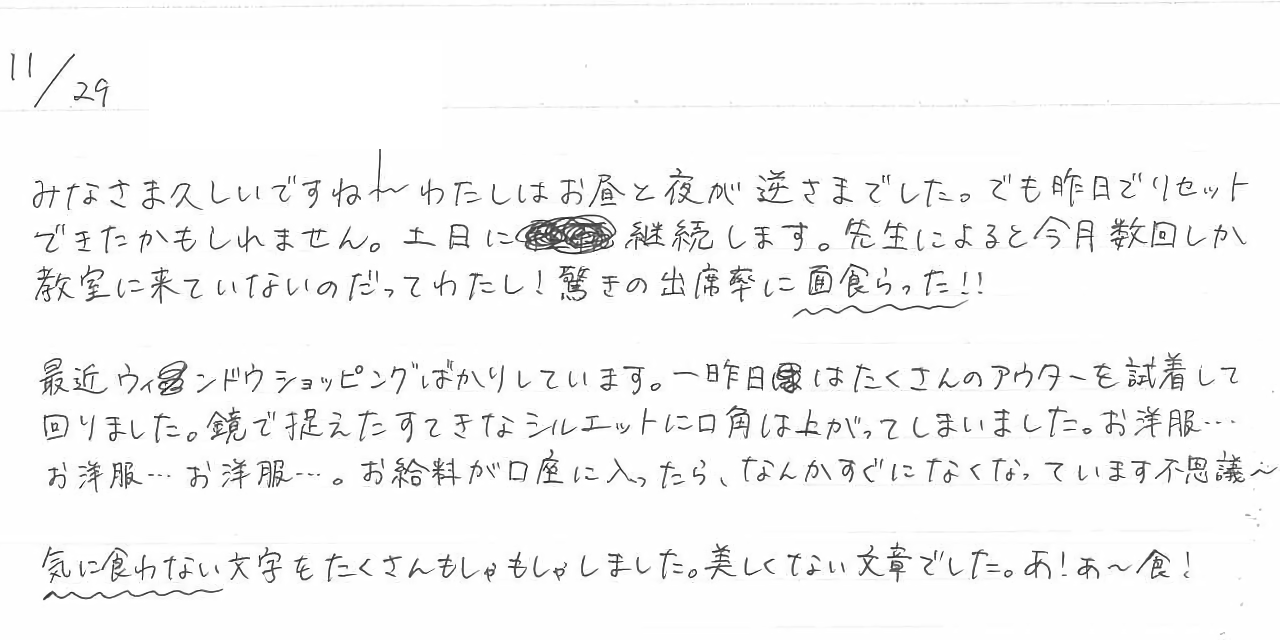 11/29
みなさま久しいですね~わたしはお昼と夜が逆さまでした。でも昨日でリセット
できたかもしれません。土日に継続します。先生によると今月数回しか
教室に来ていないのだってわたし!驚きの出席率に面食らった!!
最近ウィンドウショッピングばかりしています。一昨日はたくさんのアウターを試着して
回りました。鏡で捉えたすてきなシルエットに口角は上がってしまいました。お洋服…
お洋服…お洋服…。お給料が口座に入ったら、なんかすぐになくなっています不思議~
気に食わない文字をたくさんもしゃもしゃしました。美しくない文章でした。あ!ぁ~食!